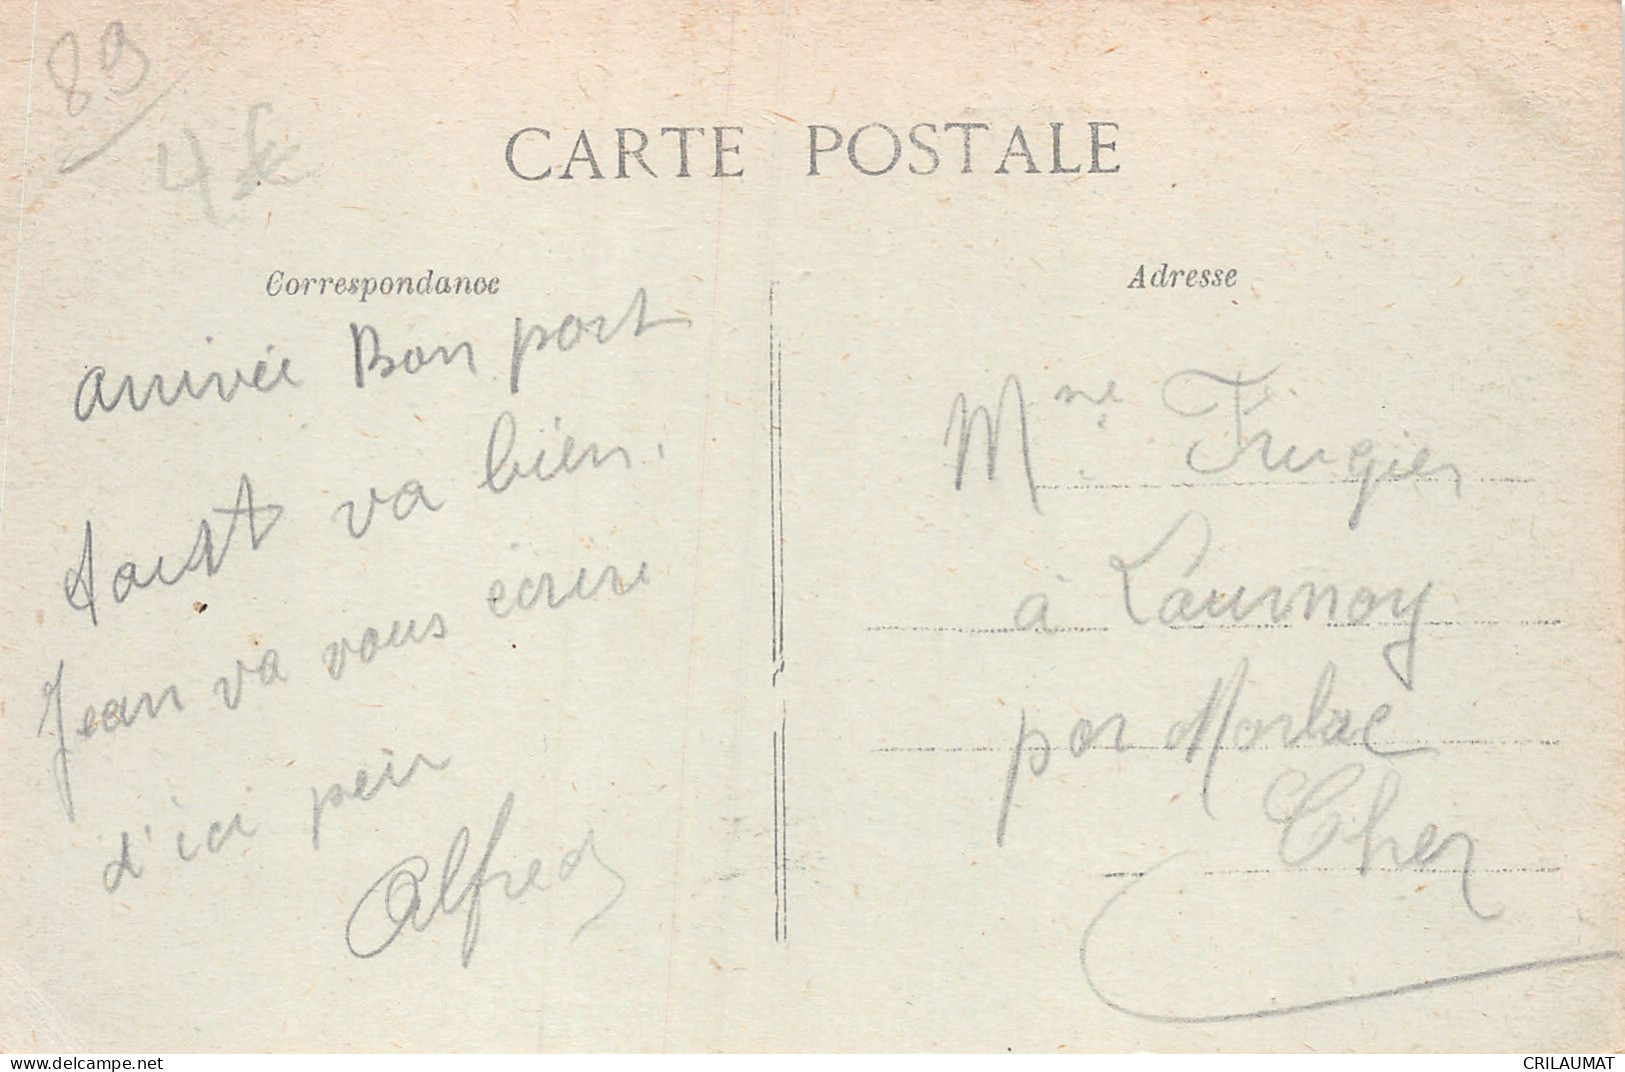 89
4€
CARTE POSTALE
Correspondance
Adresse
arrivée Bon port
tout va bien.
Jean va vous écrire
d'ici peu
Alfred
Mme Frugier
à Launoy
par Morlac
Cher
delcampe.net
CRILAUMAT